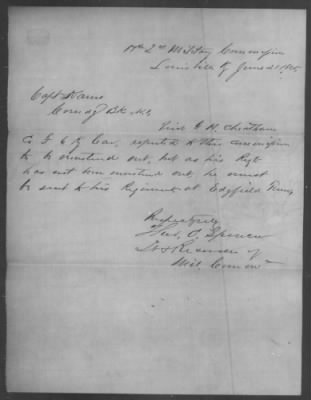 Hd Qrs Military Commission
Louisville Ky June 21 1865
Capt Kame
Comdg Bk No 1
Priv G. H. Cheatham
Co F 6 Ky Cav, reported to this commission
to be mustered out, but as his Regt
has not been mustered out, he must
be sent to his Regiment at Edgefield Tenn
Respectfully
Thos. C. Spencer
Lt & Recorder of
Mil. Comm